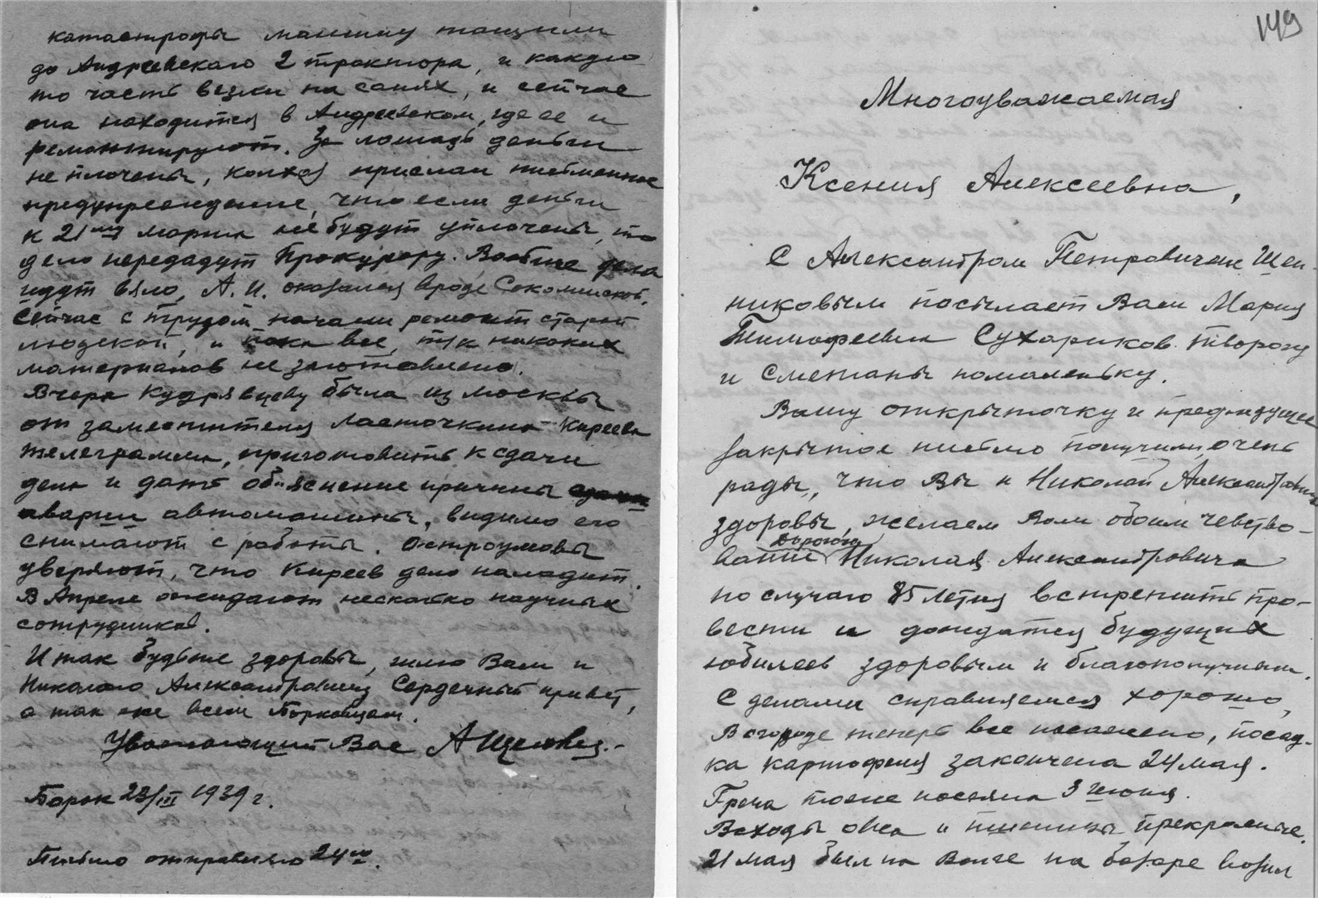 катастрофы машину тащили
до Андреевского 2 трактора, и какую
то часть везли на санях, и сейчас
она находится в Андреевском, где ее и
ремонтируют. За лошадь деньги
не плочены, колхоз прислал письменное
предупреждение, что если деньги
к 21му марта не будут уплочены, то
дело передадут Прокурору. Вообще дела
идут вяло, А. И. оказался вроде
Сейчас с трудом начали ремонт старой
людской, и пока все, т.к никоких
материалов не заготовлено.
Вчера Кудрявцеву была из Москвы
от заместителя Ласточкина Киреева
телеграмма, приготовить к сдачи
дела и дать объяснение причины
аварии автомашины, видимо его
снимают с работы. Остроумовы
уверяют, что Киреев дело наладит.
В Апреле ожидают несколько научных
сотрудников.
Итак будьте здоровы, шлю Вам и
Николаю Александровичу Сердечный привет,
а так же всем Борковцам.
Уважающий Вас
Борок 23/III 1939 г.
Письмо отправляю 24го.
149
Многоуважаемая
Ксения Алексеевна,
С Александром Петровичем
никовым посылает Вам Мария
Тимофеевна Сухариков Творогу
и Сметаны помаленьку.
Вашу открыточку и предидущее
закрытое письмо получили, очень
рады, что Вы и Николай Александрович
здоровы, желаем Вам обоим чевство-
вание дорогого Николая Александровича
по случаю 85 Летия встретить про-
вести и дождатся будущих
юбилеев здоровым и благополучным.
С делами справляемся хорошо,
В огороде теперь все посажено, посад-
ка картофеля закончена 24 мая.
Греча тоже посеяна 3 Июня.
Всходы овса и пшеницы прекрасные.
21 мая был на Волге на базаре возил